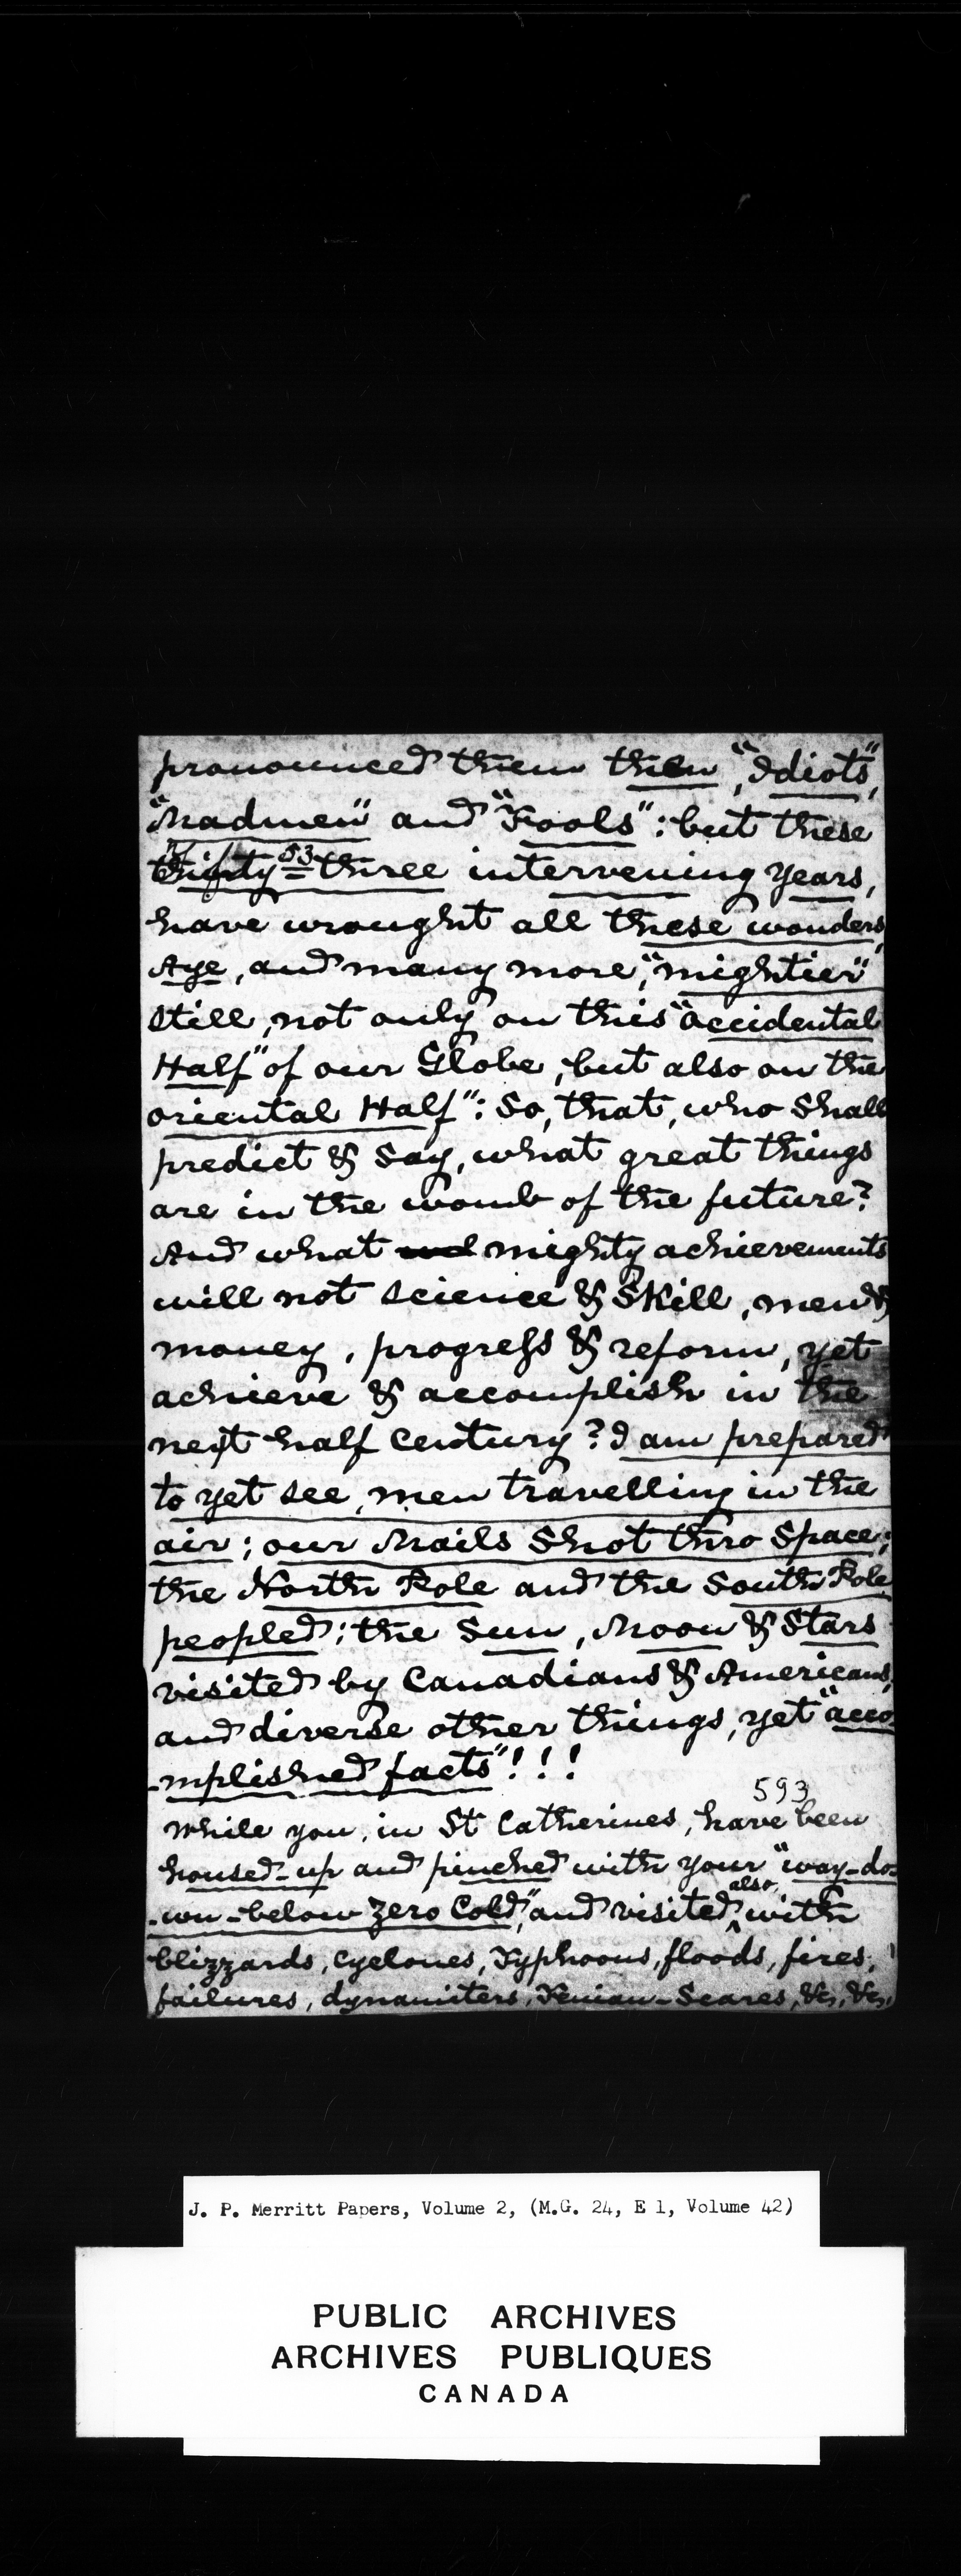 pronounced them then, "Idiots",
"Madmen" and "Fools": but these
thirty-three 53 intervening years,
have wrought all these wonders
Aye, and many more, "mightier"
still, not only on this "occidental
Half" of our Globe, but also on the
oriental Half": So, that, who shall
predict & Say, what great things
are in the womb of the future?
And what mighty achievements
will not science & Skill, men &
money, progress & reform, yet
achieve & accomplish in the
next half Century? I am prepared
to yet see, men travelling in the
air; our Mails Shot thro Space;
the North Pole and the South Pole
peopled; the Sun, Moon & Stars
visited by Canadians & Americans,
and diverse other things, yet "acco
-mplished facts"!!!
593
While you, in St Catherines, have been
housed-up and pinched with your "way-do-
also,
-wn-below Zero Cold," and visited ^ with
blizzards, Cyclones, Typhoons, floods, fires,
failures, dynamiters, Fenian-Scares, &c, &c,
J. P. Merritt Papers, Volume 2, (M.G. 24, E 1, Volume 42)
PUBLIC ARCHIVES
ARCHIVES PUBLIQUES
CANADA